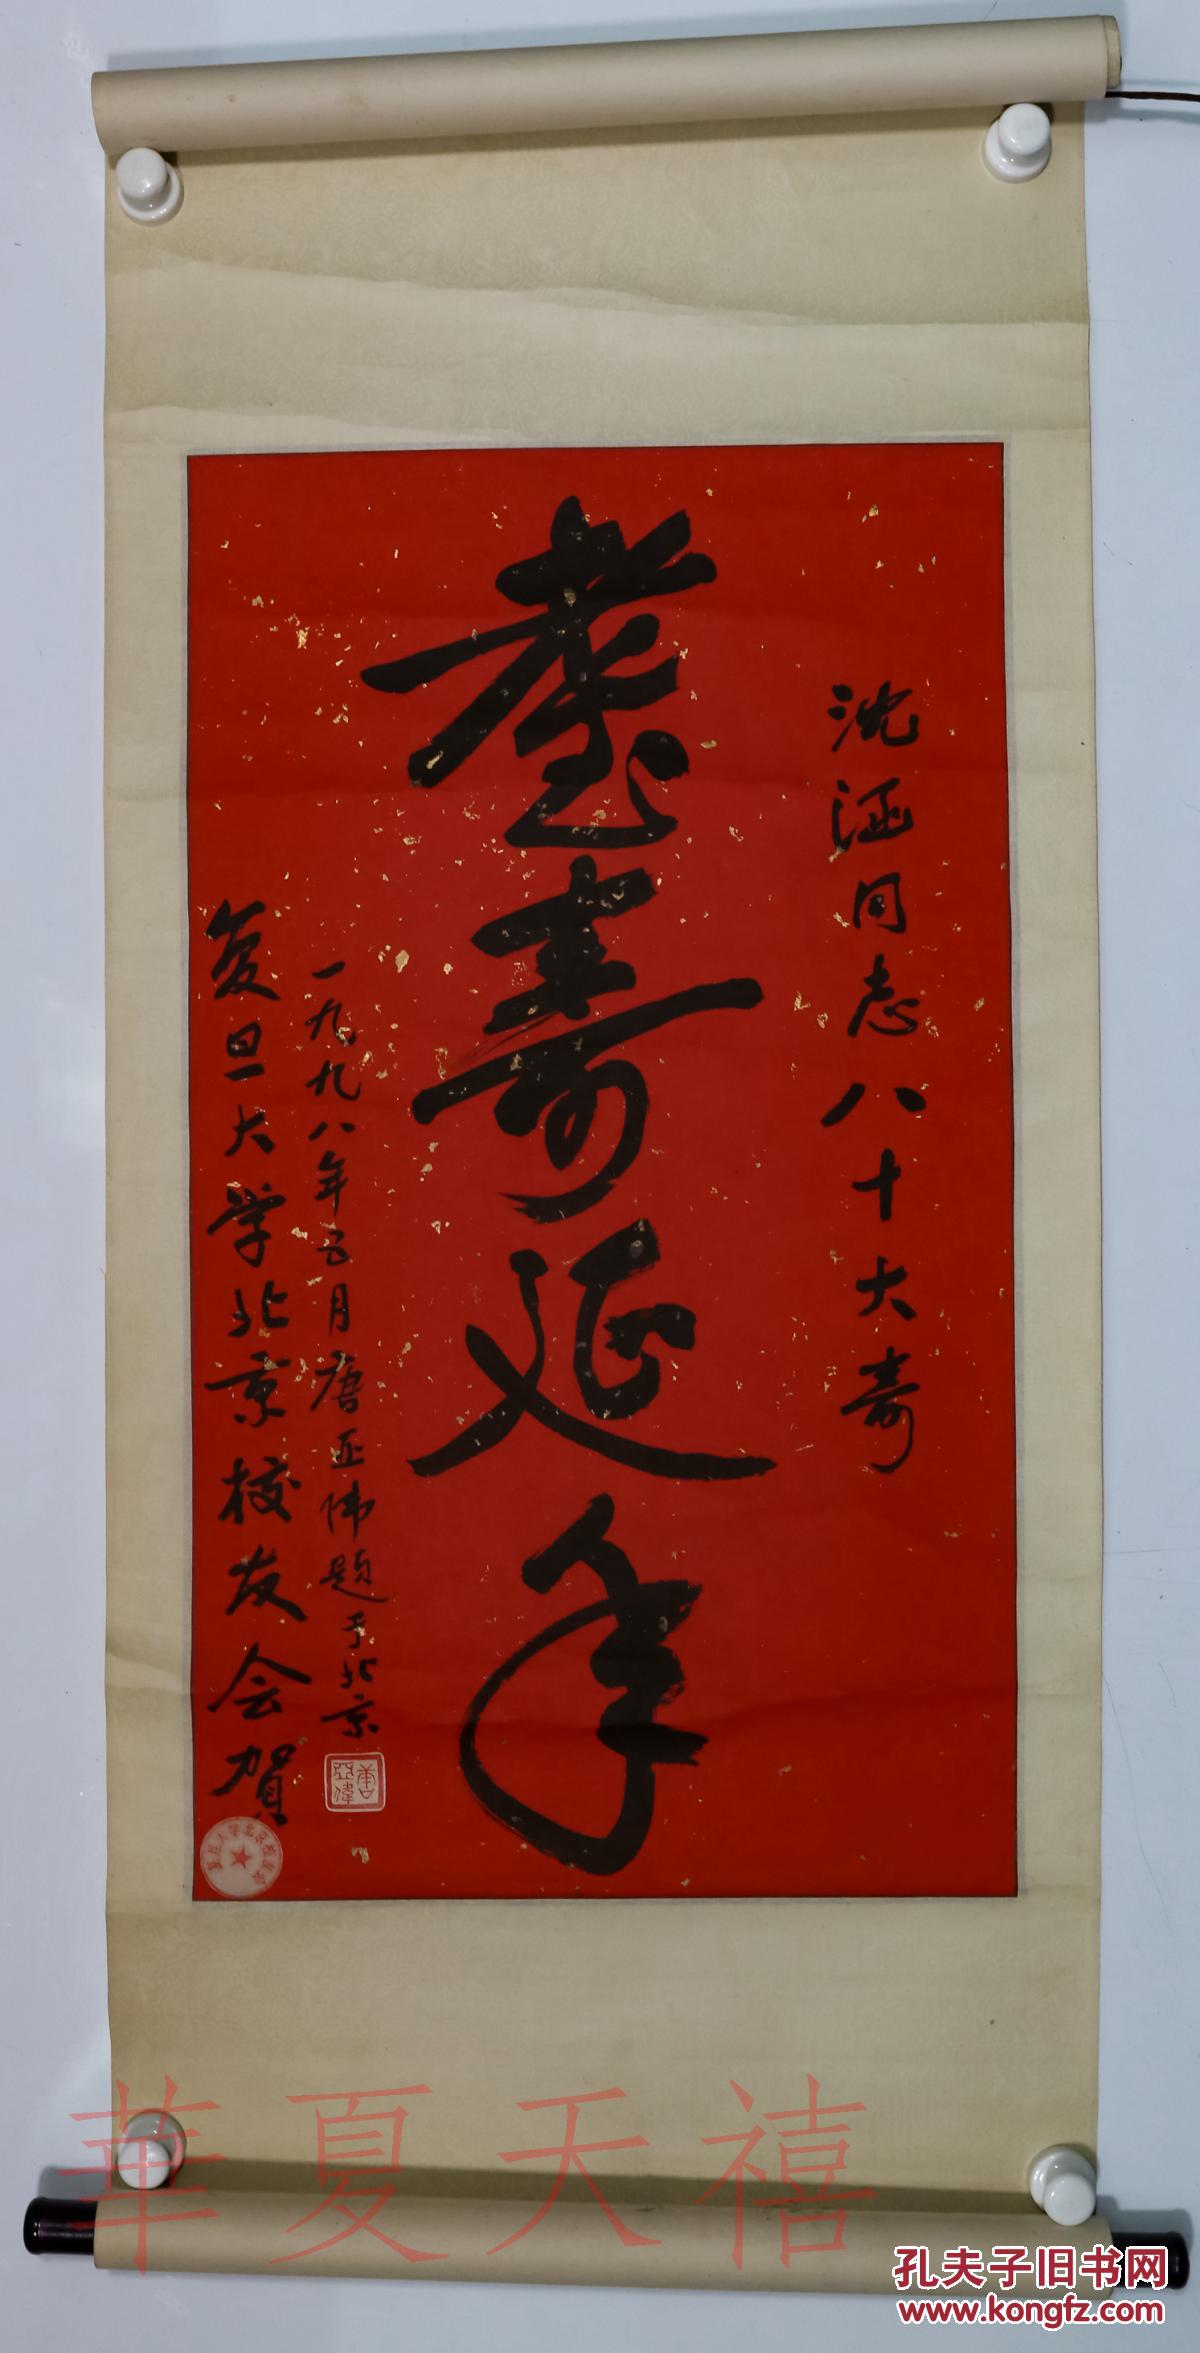 沈涵同志八十大寿
耋寿延年
一九九八年五月唐亚伟题于北京
唐亞偉
复旦大学北京校友会賀
复旦大学北京校友会
華夏天禧
孔夫子旧书网
www.kongfz.com